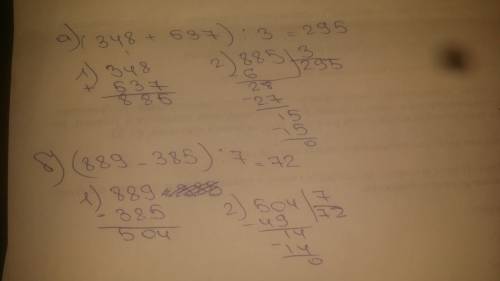 а) (348 + 537) : 3 = 295
1) 348
+ 537
885
2) 885 | 3
6 295
28
-27
15
-15
0
б) (889 - 385) : 7 = 72
1) 889
- 385
504
2) 504 | 7
-49 72
14
-14
0